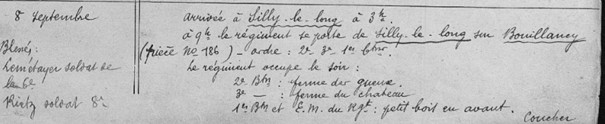 8 Septembre
Blessés:
Lemétayer soldat de
la 6e
Rietz soldat 8e
arrivée à Silly-le-long à 3h.
à 9h le régiment se porte de Silly-le-long sur Bouillancy
(pièce No 186) - ordre: 2e 3e 1er Btn.
Le régiment occupe le soir:
2e Btn: ferme des gueux.
3e — : ferme du chateau
1er Btn et E.M. du Rgt: petit bois en avant.
Coucher